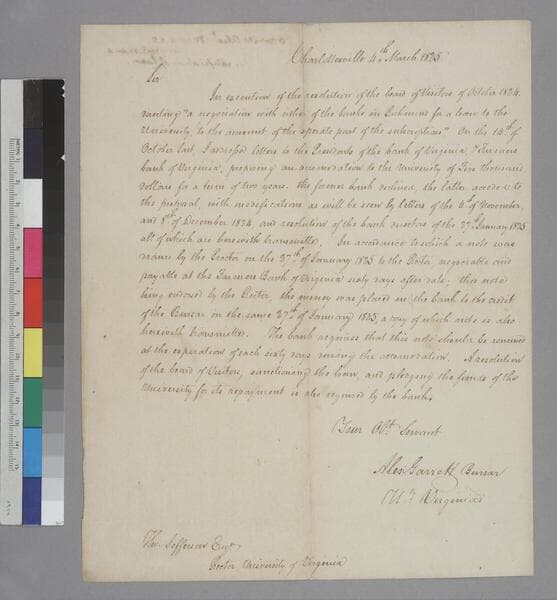 Charlottesville 4th March 1825
Sir
In execution of the resolution of the board of Visitors of October 1824.
"a negotiation with either of the banks in Richmond for a loan to the
University, to the amount of the part of the subscriptions". On the 14th of
October last, I addressed letters to the Presidents of the bank of Virginia & Farmers
bank of Virginia, proposing an accomodation to the University of Five thousand
dollars for a term of two years. the former bank declined, the latter acceded to
the proposal, with modifications as will be seen by letters of the 6th of November,
and 8th of December 1824, and resolution of the bank of the 27th January 1825
all of which are herewith transmitted. In accordance to which a note was
drawn by the Proctor on the 27th of January 1825 to the negociable and
payable at the Farmers Bank of Virginia sixty days after date, this note
being endorsed by the Rector, the money was placed in the bank to the credit
of the Bursar on the same 27th of January 1825, a copy of which note is also
herewith transmitted. The bank requires that this note should be renewed
at the expiration of each sixty days during the accomodation. A resolution
of the board of Visitors, sanctioning the loan, and pledging the funds of the
University for its repayment is also required by the bank.
Your Obt Servant
Alex Garrett Bursar
Uy Virginia
Tho. Jefferson Esqr
Rector University of Virginia